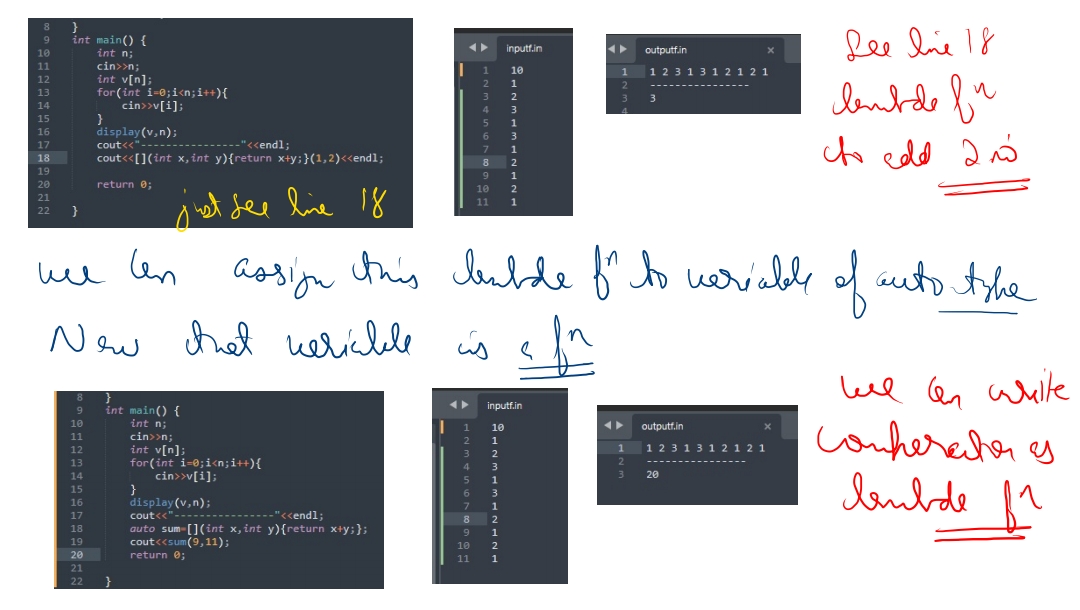 8 }
9 int main() {
10 int n;
11 cin>>n;
12 int v[n];
13 for(int i=0;i<n;i++){
14 cin>>v[i];
15 }
16 display(v,n);
17 cout<<"----------------"<<endl;
18 cout<<[](int x,int y){return x+y;}(1,2)<<endl;
19
20 return 0;
21
22 }
just see line 18
inputf.in
1 10
2 1
3 2
4 3
5 1
6 3
7 1
8 2
9 1
10 2
11 1
outputf.in ×
1 1 2 3 1 3 1 2 1 2 1
2 ----------------
3 3
4
See line 18
lambda fn
to add 2 no
we can assign this lambda fn to variable of auto type
Now that variable is a fn
8 }
9 int main() {
10 int n;
11 cin>>n;
12 int v[n];
13 for(int i=0;i<n;i++){
14 cin>>v[i];
15 }
16 display(v,n);
17 cout<<"----------------"<<endl;
18 auto sum=[](int x,int y){return x+y;};
19 cout<<sum(9,11);
20 return 0;
21
22 }
inputf.in
1 10
2 1
3 2
4 3
5 1
6 3
7 1
8 2
9 1
10 2
11 1
outputf.in ×
1 1 2 3 1 3 1 2 1 2 1
2 ----------------
3 20
we can write
comparator as
lambda fn